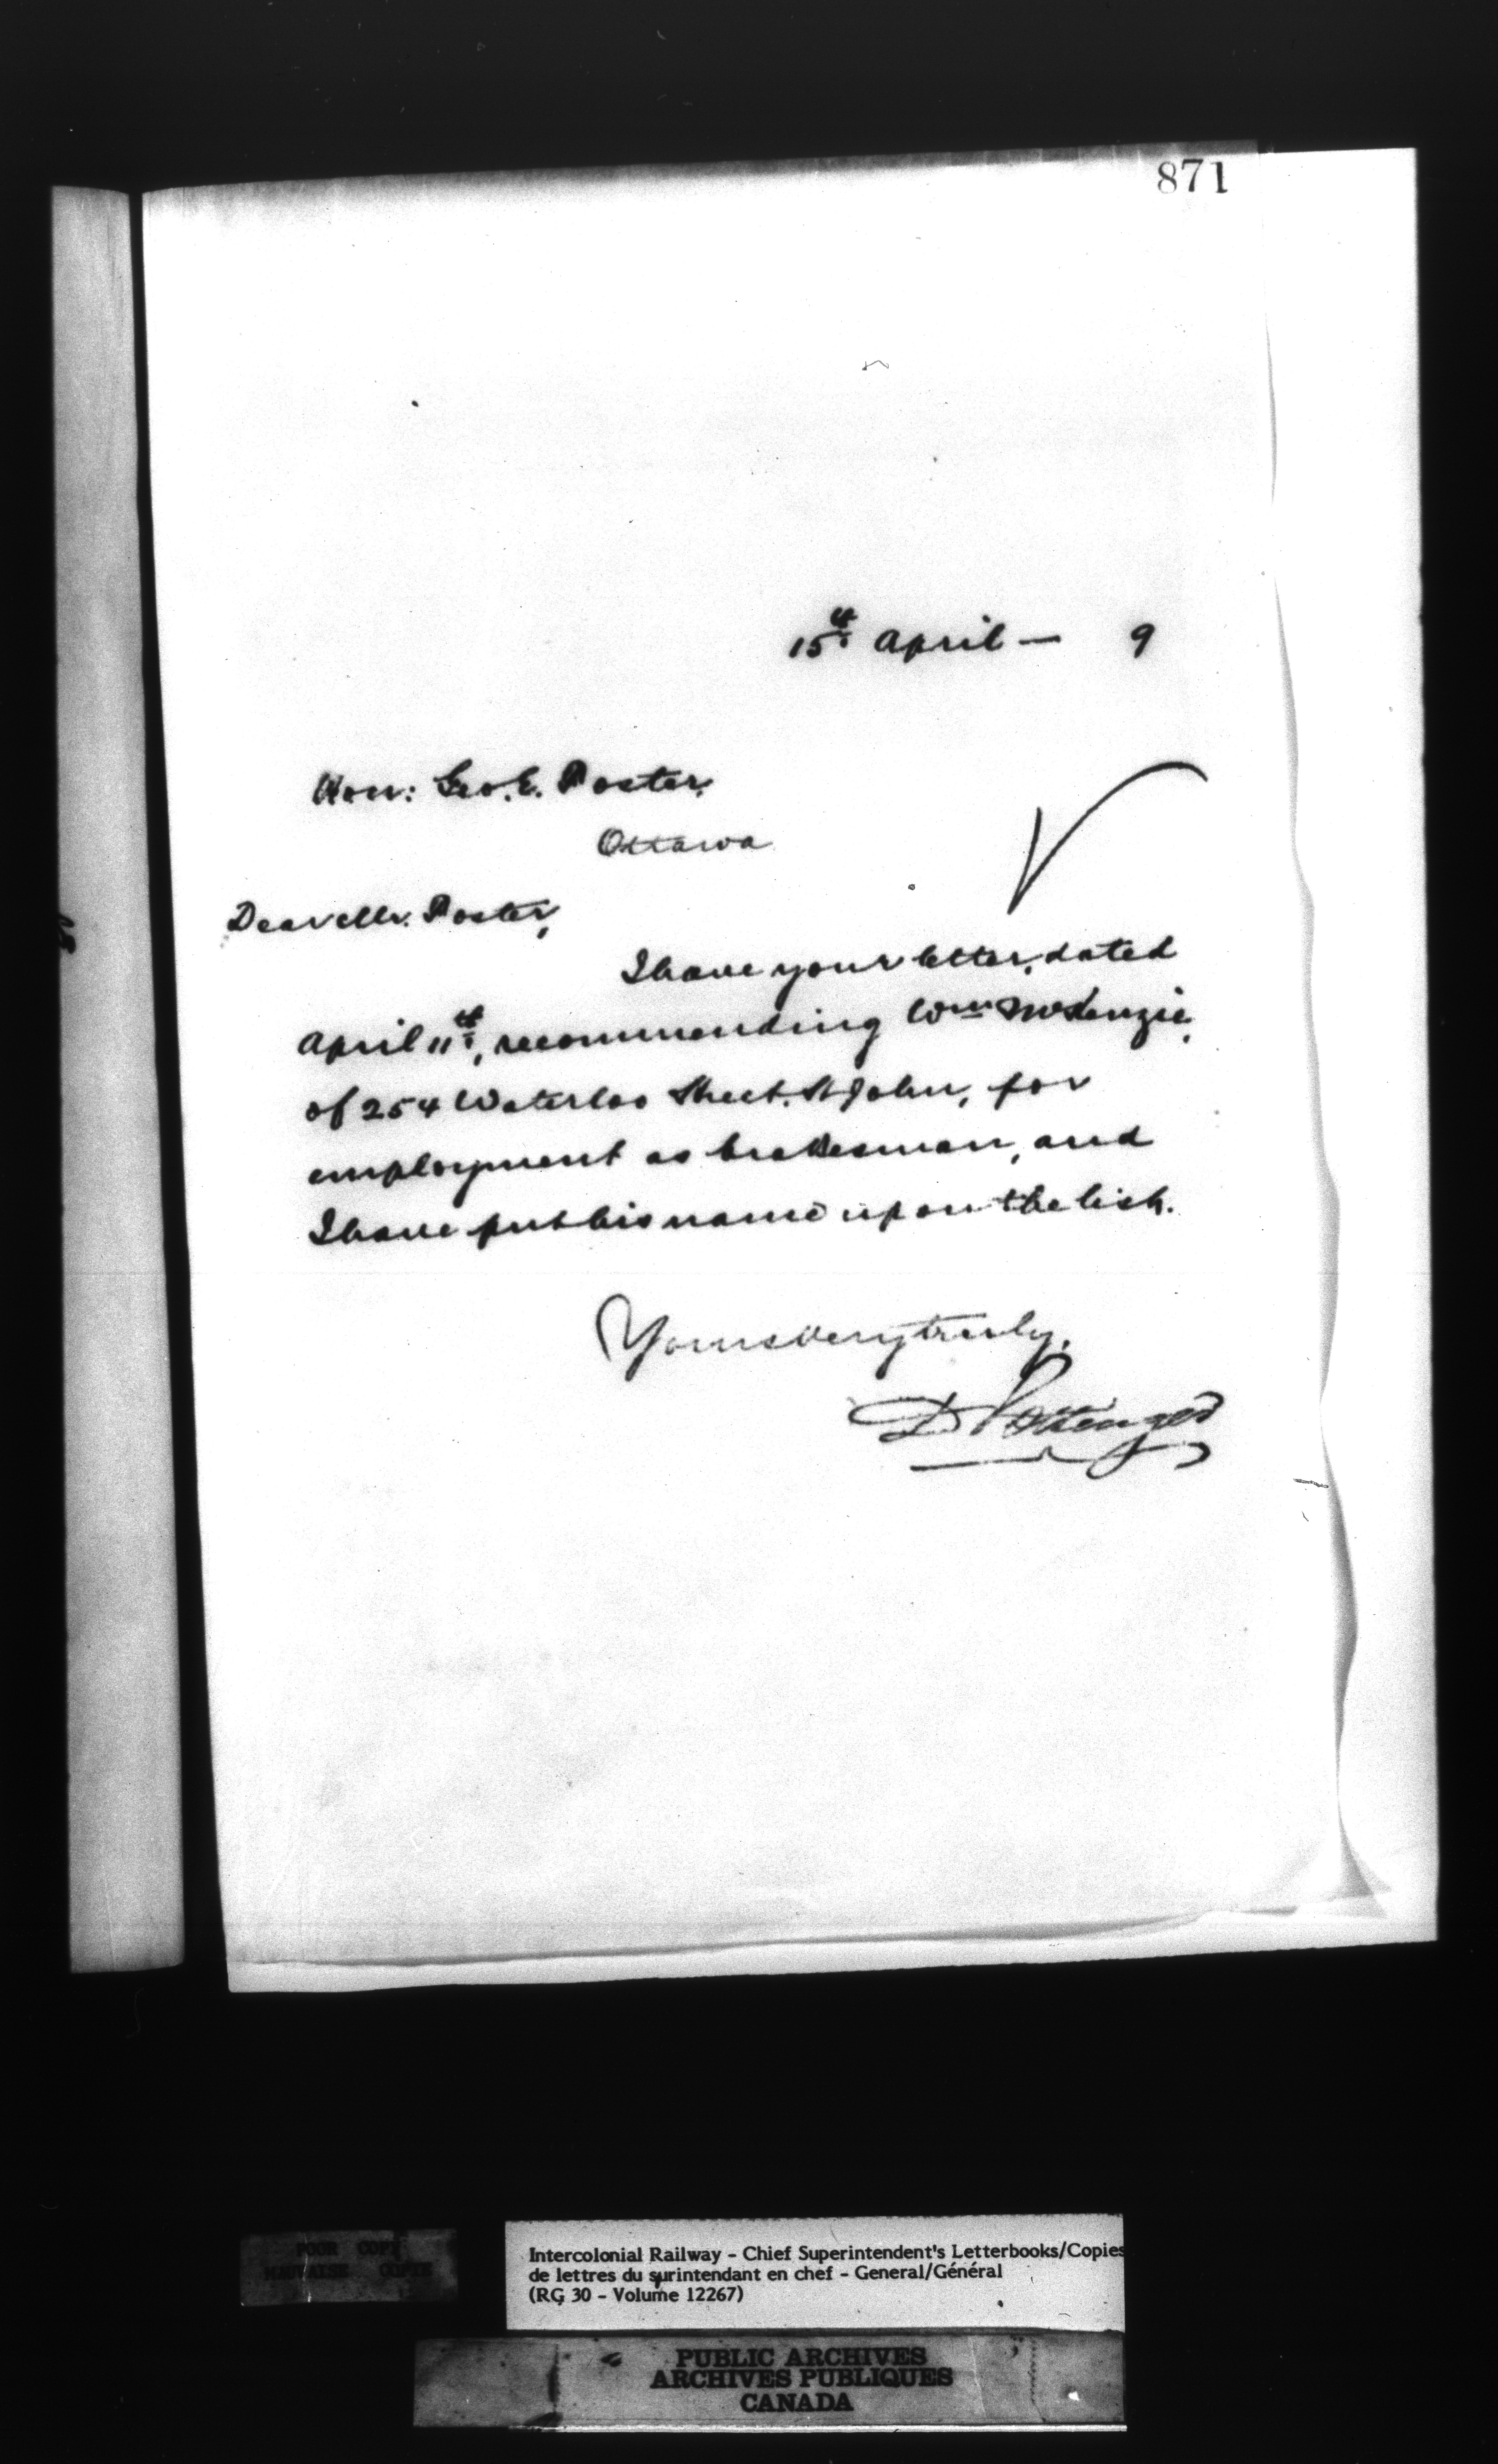 871
15th April — 9
Hon: Geo. E. Foster,
Ottawa
Dear Mr. Foster,
I have your letter, dated
April 11th, recommending Wm McKenzie,
of 254 Waterloo Street, St John, for
employment as brakesman, and
I have put his name upon the list.
Yours very truly,
D Pottinger
POOR COPY
MAUVAISE COPIE
Intercolonial Railway - Chief Superintendent's Letterbooks/Copies
de lettres du surintendant en chef - General/Général
(RG 30 - Volume 12267)
PUBLIC ARCHIVES
ARCHIVES PUBLIQUES
CANADA